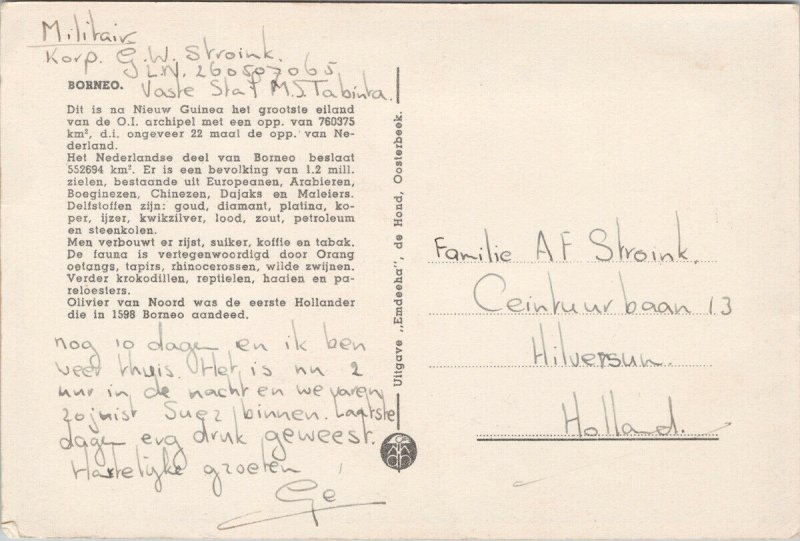 Militair
Korp. G.W. Stroink.
L.N. 260507065
Vaste Staf M.S. Tabinta.
BORNEO.
Dit is na Nieuw Guinea het grootste eiland
van de O.I. archipel met een opp. van 760375
km², d.i. ongeveer 22 maal de opp. van Ne-
derland.
Het Nederlandse deel van Borneo beslaat
552694 km². Er is een bevolking van 1.2 mill.
zielen, bestaande uit Europeanen, Arabieren,
Boeginezen, Chinezen, Dajaks en Maleiers.
Delfstoffen zijn: goud, diamant, platina, ko-
per, ijzer, kwikzilver, lood, zout, petroleum
en steenkolen.
Men verbouwt er rijst, suiker, koffie en tabak.
De fauna is vertegenwoordigd door Orang
oetangs, tapirs, rhinocerossen, wilde zwijnen.
Verder krokodillen, reptielen, haaien en pa-
reloesters.
Olivier van Noord was de eerste Hollander
die in 1598 Borneo aandeed.
nog 10 dagen en ik ben
weer thuis. Het is nu 2
uur in de nacht en we varen
zojuist Suez binnen. Laatste
dagen erg druk geweest.
Hartelijke groeten
Ge
Uitgave „Emdeeha", de Houd, Oosterbeek.
Familie A F Stroink.
Ceintuurbaan 13
Hilversum.
Holland.